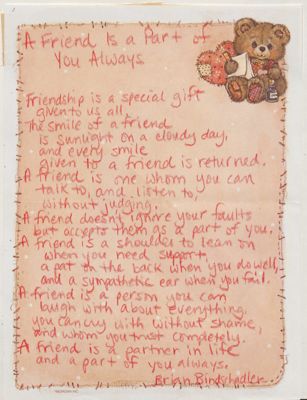 A Friend Is a Part of
You Always
Friendship is a special gift
given to us all.
The smile of a friend
is sunlight on a cloudy day,
and every smile
given to a friend is returned.
A friend is one whom you can
talk to, and listen to,
without judging.
A friend doesn't ignore your faults
but accepts them as a part of you.
A friend is a shoulder to lean on
when you need support,
a pat on the back when you do well,
and a sympathetic ear when you fail.
A friend is a person you can
laugh with about everything,
you can cry with without shame,
and whom you trust completely.
A friend is a partner in life
and a part of you always.
Brian